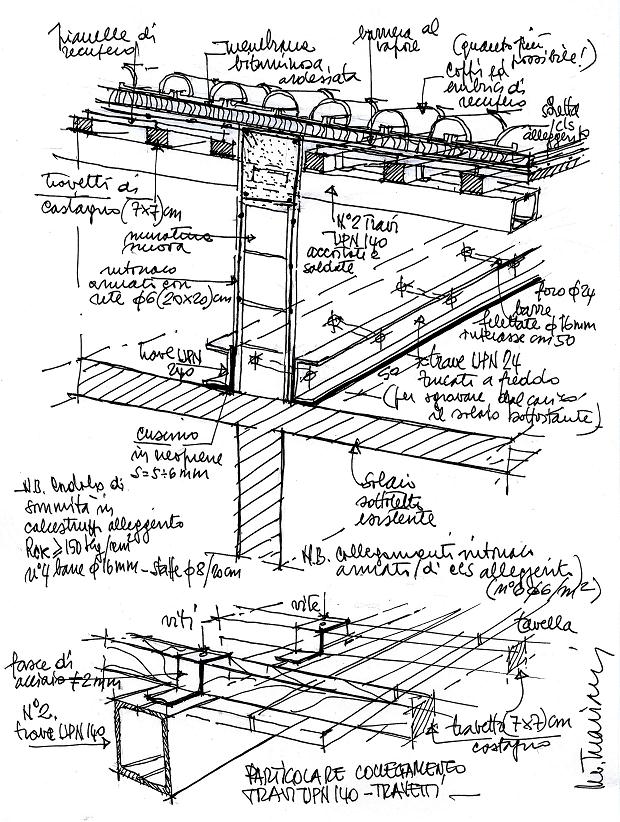 pianelle di
recupero
membrana
bituminosa
ardesiata
barriera al
vapore
(quanto più
possibile!)
coppi ed
embrici di
recupero
soletta
cls
alleggerito
travetti di
castagno (7x7) cm
muratura
nuova
intonaco
armato con
rete φ6 (20x20) cm
N°2 Travi
UPN 140
accostati e
saldate
foro φ24
barre
filettate φ16mm
interasse cm 50
trave UPN
240
trave UPN 24
forati a freddo
(per sgravare dal carico
il solaio sottostante)
cuscino
in neoprene
s=5÷6mm
solaio
sottotetto
esistente
N.B. Cordolo di
sommità in
calcestruzzo alleggerito
Rck ≥ 150 kg/cm²
n°4 barre φ16mm - staffe φ8/20cm
N.B. collegamenti intonaci
armati/di cls alleggerito
(n°6 φ6/m²)
viti
vite
tavella
fasce di
acciaio ≠2mm
N°2
trave UPN 140
travetto (7x7) cm
castagno
PARTICOLARE COLLEGAMENTO
TRAVI UPN 140 - TRAVETTI